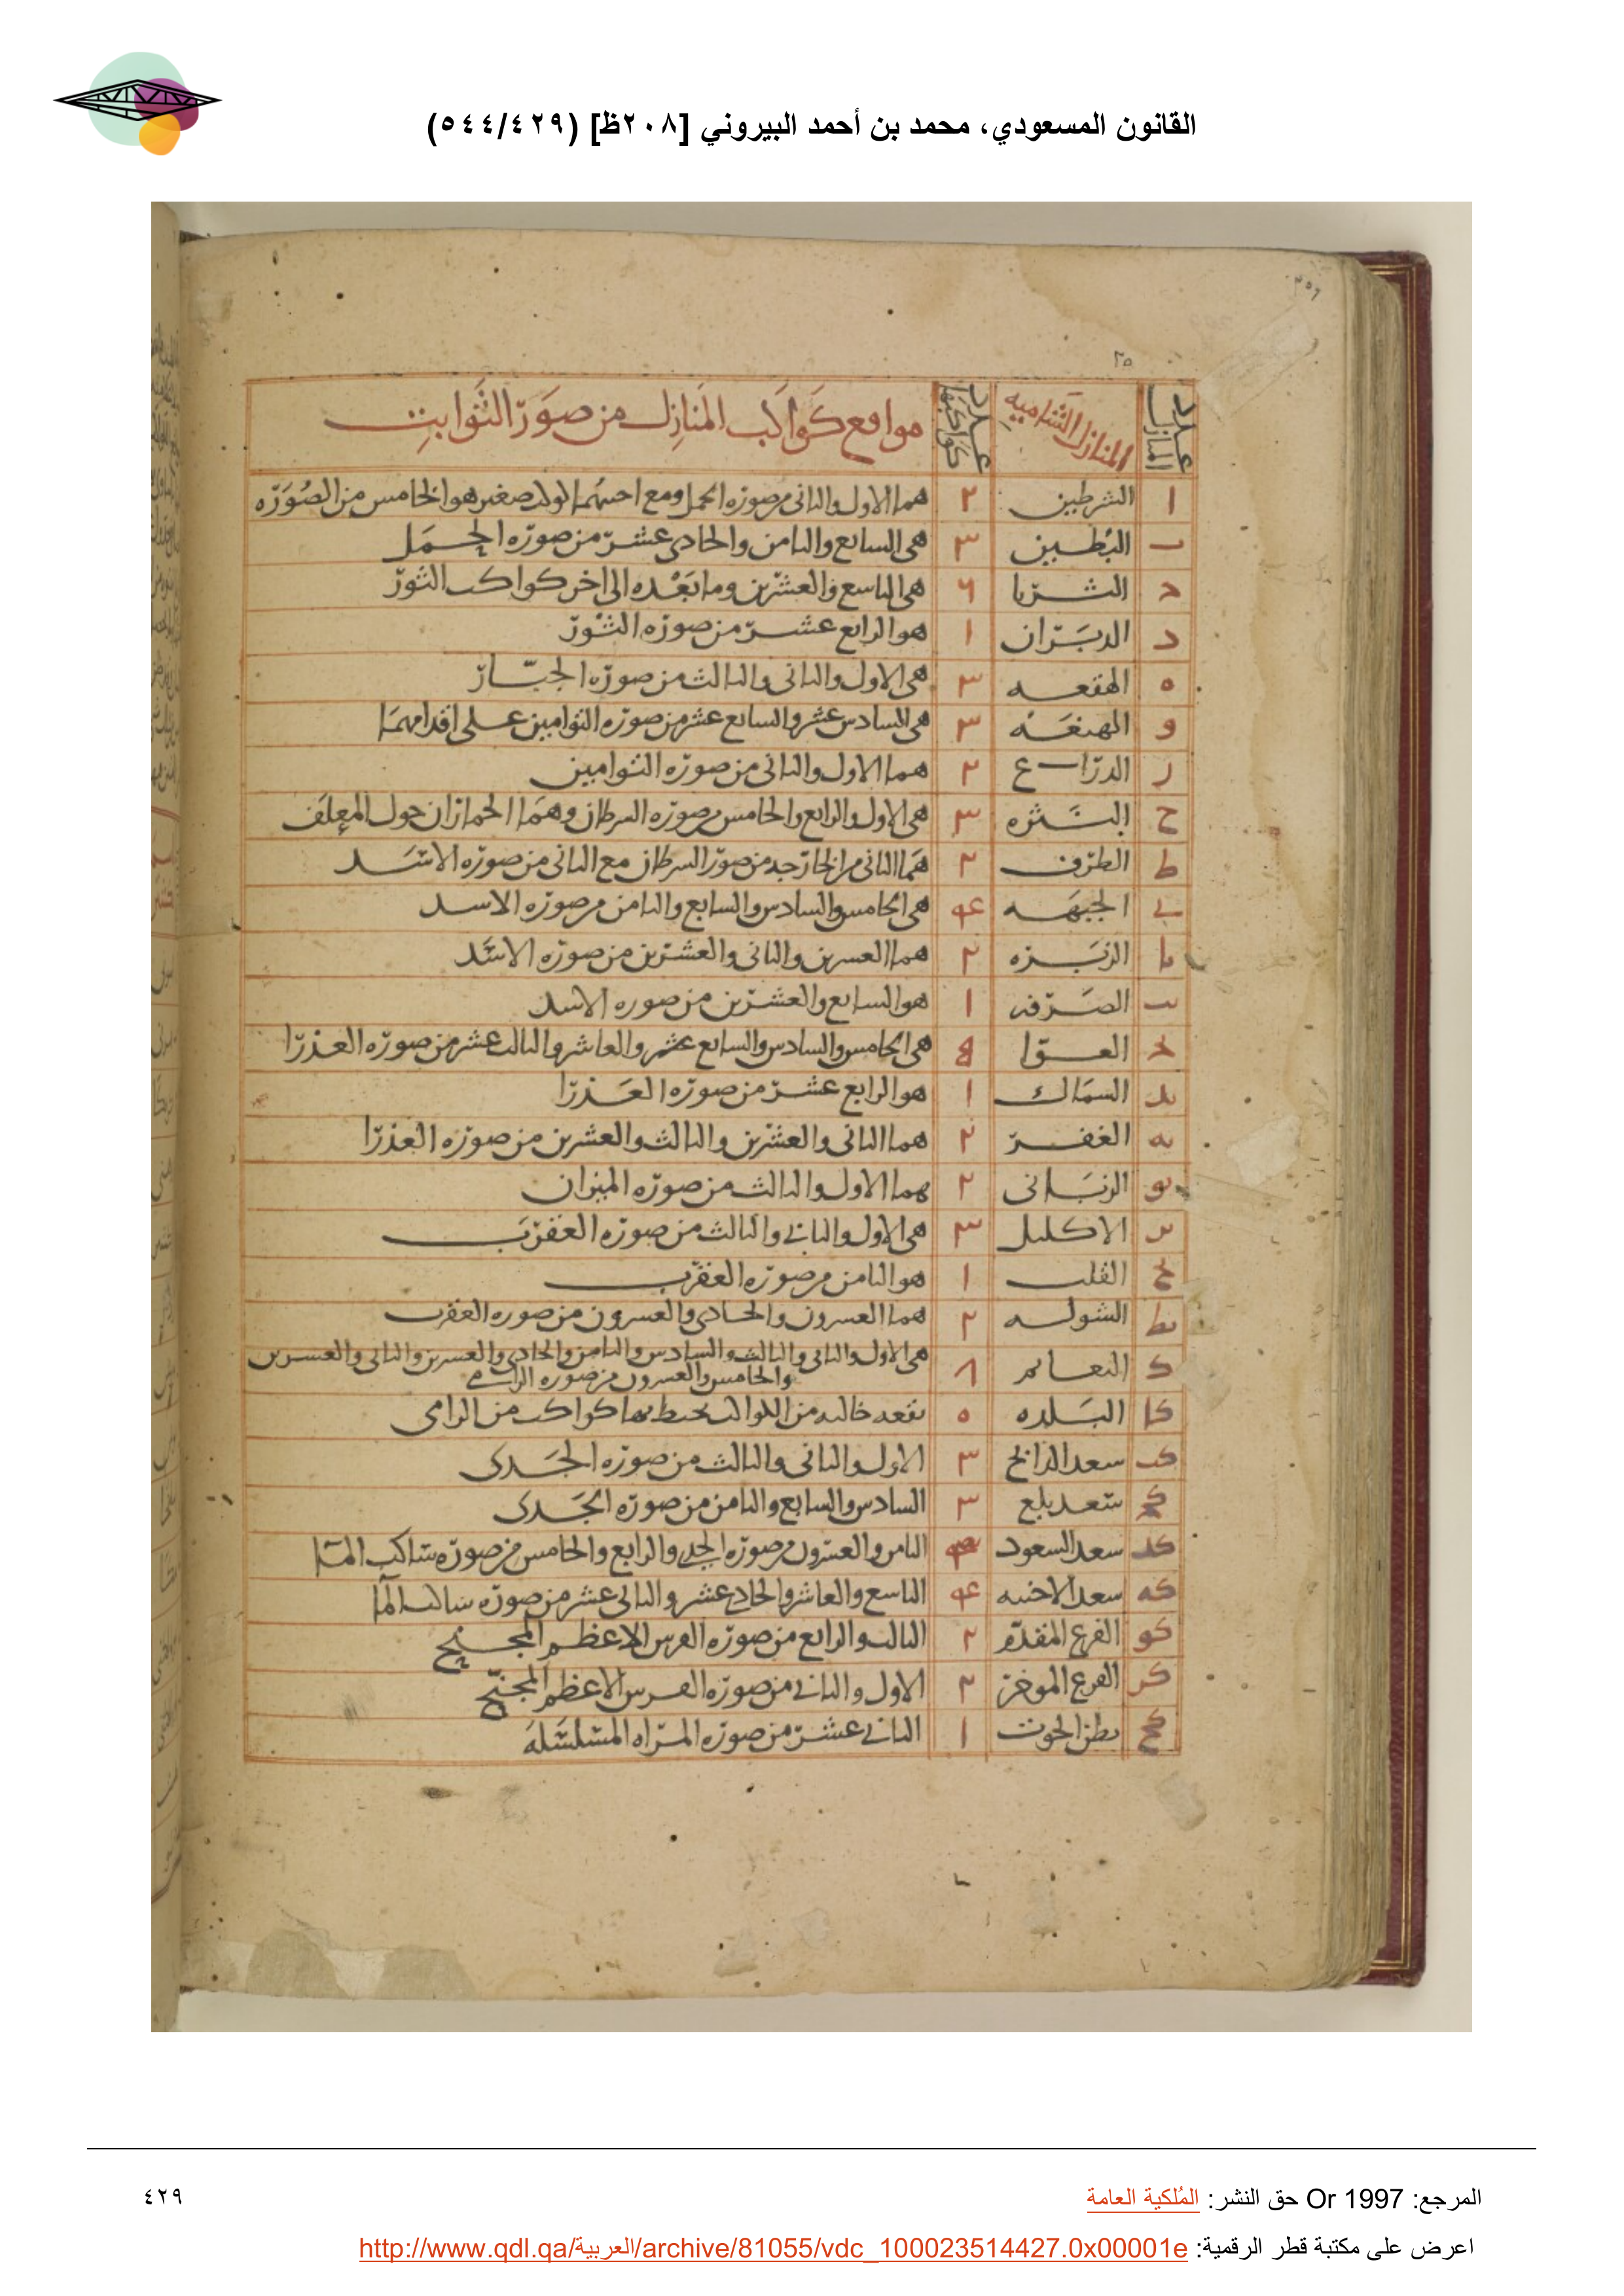 القانون المسعودي، محمد بن أحمد البيروني [٢٠٨ظ] (٥٤٤/٤٢٩)
٢٥
عدد المنازل المنازل الشاميه عدد كواكبها مواقع كواكب المنازل من صور الثوابت
ا الشرطين ٢ هما الاول والثانى من صوره الحمل ومع احدهما الولد صغير هو الخامس من الصوره
ب البطين ٣ هى السابع والثامن والحادى عشر من صوره الحمل
ج الثريا ٦ هى التاسع والعشرين وما بعده الى اخر كواكب الثور
د الدبران ١ هو الرابع عشر من صوره الثور
ه الهقعه ٣ هى الاول والثانى والثالث من صوره الجبار
و الهنعه ٣ هى السادس عشر والسابع عشر من صوره التوامين على اقدامهما
ز الذراع ٢ هما الاول والثانى من صوره التوامين
ح النثره ٣ هى الاول والرابع والخامس من صوره السرطان وهما الحماران حول المعلف
ط الطرف ٢ هما الثانى من الخارجه من صور السرطان مع الثانى من صوره الاسد
ى الجبهه ۴ هى الخامس والسادس والسابع والثامن من صوره الاسد
يا الزبره ٢ هما العشرين والثانى والعشرين من صوره الاسد
يب الصرفه ١ هو السابع والعشرين من صوره الاسد
يج العوا ۵ هى الخامس والسادس والسابع عشر والعاشر والثالث عشر من صوره العذرا
يد السماك ١ هو الرابع عشر من صوره العذرا
يه الغفر ٢ هما الثانى والعشرين والثالث والعشرين من صوره العذرا
يو الزبانى ٢ هما الاول والثالث من صوره الميزان
يز الاكليل ٣ هى الاول والثانى والثالث من صوره العقرب
يح القلب ١ هو الثامن من صوره العقرب
يط الشوله ٢ هما العشرون والحادى والعشرون من صوره العقرب
ك النعايم ٨ هى الاول والثانى والثالث والسادس والثامن والحادى والعشرين والثانى والعشرين
والخامس والعشرون من صوره الرامى
كا البلده ٥ بقعه خاليه من الكواكب يحيط بها كواكب من الرامى
كب سعد الذابح ٣ الاول والثانى والثالث من صوره الجدى
كج سعد بلع ٣ السادس والسابع والثامن من صوره الجدى
كد سعد السعود الثامن والعشرون من صوره الجدى والرابع والخامس من صوره ساكب الما
كه سعد الاخبيه ۴ التاسع والعاشر والحادى عشر والثانى عشر من صوره ساكب الما
كو الفرع المقدم ٢ الثالث والرابع من صوره الفرس الاعظم المجنح
كز الفرع الموخر ٢ الاول والثانى من صوره الفرس الاعظم المجنح
كح بطن الحوت ١ الثانى عشر من صوره المراه المسلسله
المرجع: Or 1997 حق النشر: المُلكية العامة
٤٢٩
اعرض على مكتبة قطر الرقمية: http://www.qdl.qa/العربية/archive/81055/vdc_100023514427.0x00001e